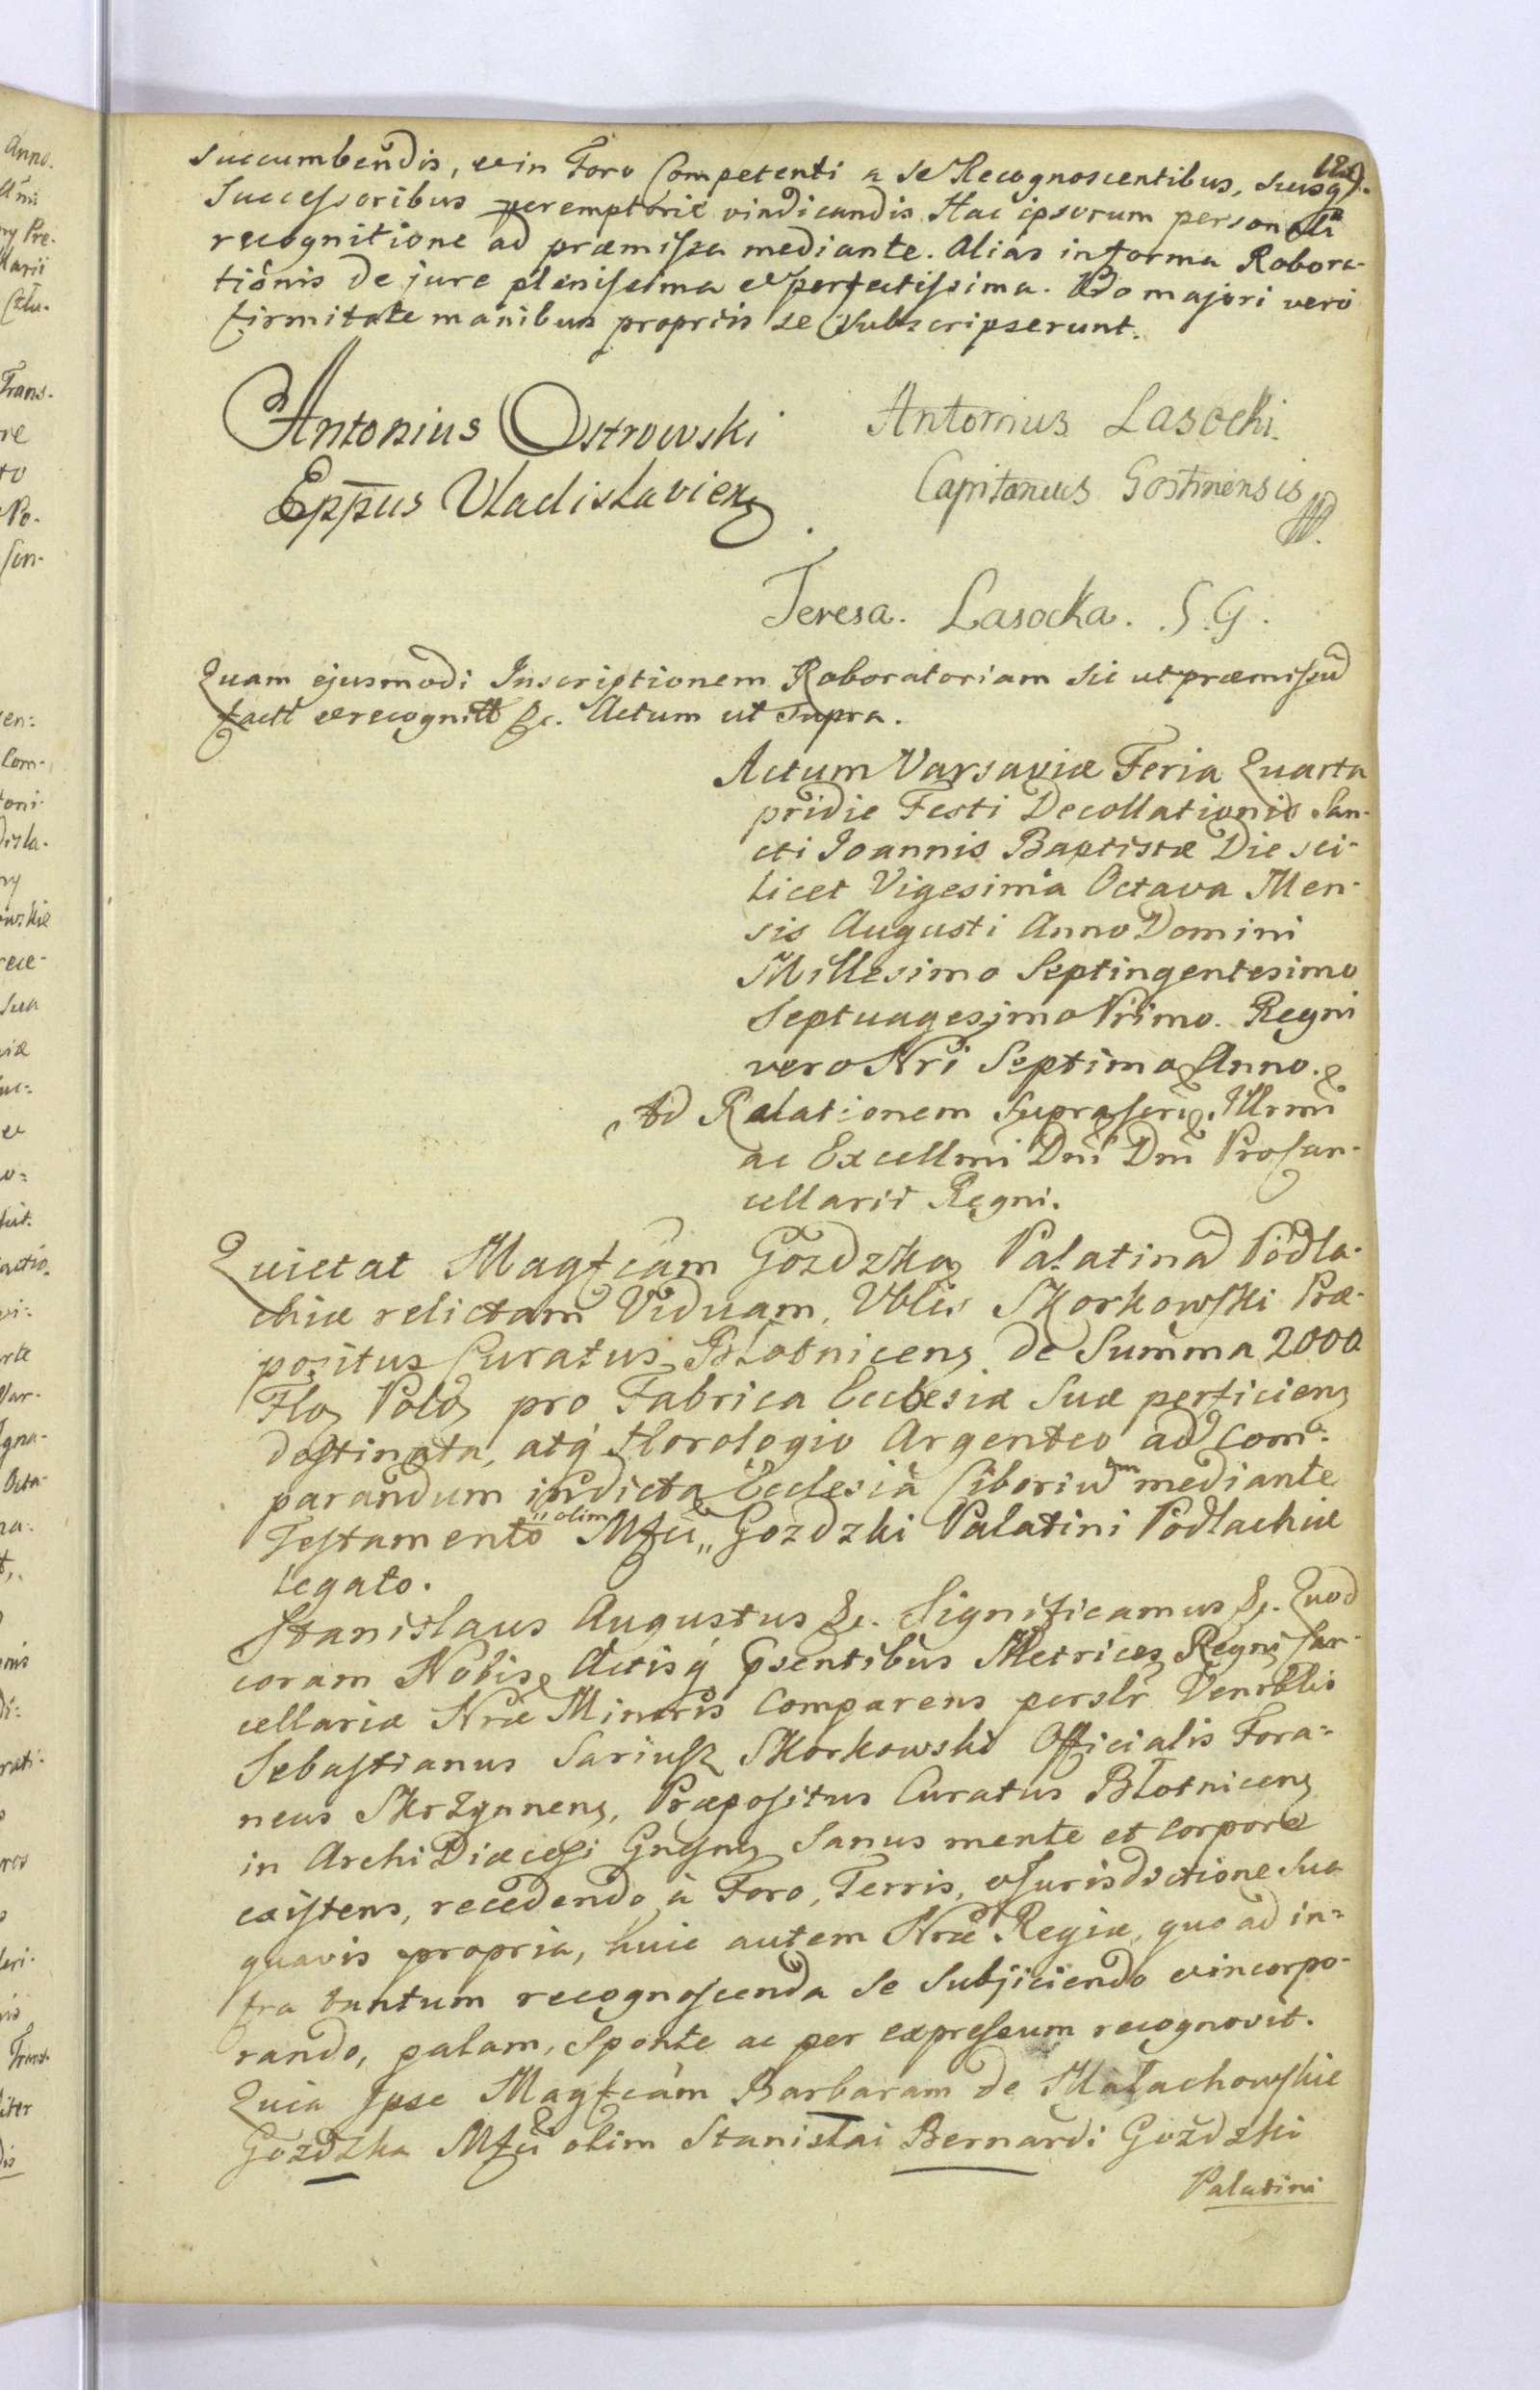 succumbendis, et in Foro Competenti a se Recognoscentibus, suisq́
Successoribus peremptorie vindicandis. Hac ipsorum personali
recognitione ad præmissa mediante. Alias in forma Robora-
tionis de jure plenissima et perfectissima. Pro majori vero
firmitate manibus propriis se subscripserunt.
Antonius Ostrowski
Eppus Vladislavien
Antonius Lasocki.
Capitaneus Gostinensis
Teresa. Lasocka. S.G.
Quam ejusmodi Inscriptionem Roboratoriam sic ut præmissũ
factt et recognitt &c. Actum ut supra.
Actum Varsaviæ Feria Quarta
pridie Festi Decollationis San-
cti Joannis Baptistæ Die sci-
licet Vigesima Octava Men-
sis Augusti Anno Domini
Millesimo Septingentesimo
Septuagesimo Primo. Regni
vero Nri Septimo Anno.
Ad Relationem suprascri. Illrmi
ac Excellmi Dni Dni ProCan-
cellarii Regni.
Quietat Magfcam Gozdzka Palatinã Podla-
chiæ relictam Viduam, Vblis Skorkowski Præ-
positus Curatus Błotnicen de Summa 2000
Flo Polo pro Fabrica Ecclesiæ suæ perficien
destinata, atq́ Horologio Argenteo ad com-
parandum in dicta Ecclesia Ciborium mediante
Testamento olim Mfci Gozdzki Palatini Podlachiæ
legato.
Stanislaus Augustus &c. Significamus &c. Quod
coram Nobis Actisq́ Psentibus Metrices Regni Can-
cellariæ Nræ Minoris Comparens persłr Venrblis
Sebastianus Sariusz Skorkowski Officialis Fora-
neus Skrzynnen, Præpositus Curatus Błotnicen
in ArchiDiæcesi Gnesn Sanus mente et corpore
existens, recedendo à Foro, Terris, et Jurisdictione sua
quavis propria, huic autem Nræ Regiæ, quo ad in-
fra tantum recognoscenda se subjiciendo et incorpo-
rando, palam, sponte ac per expressum recognovit.
Quia Ipse Magfcam Barbaram de Małachowskie
Gozdzka Mfci olim Stanislai Bernardi Gozdzki
Palatini